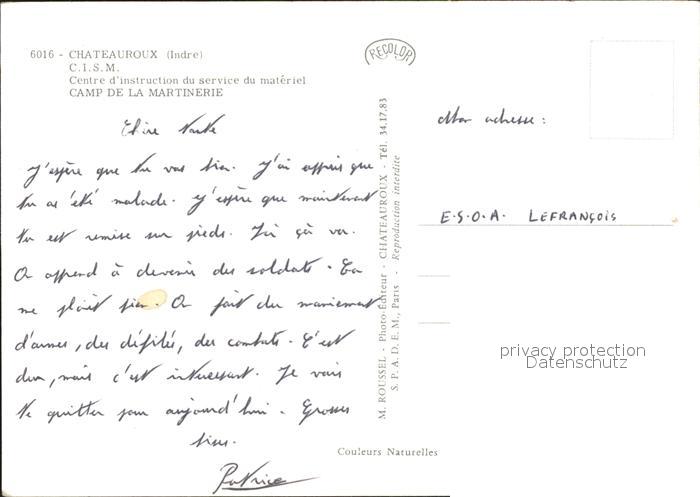 6016 - CHATEAUROUX (Indre)
C.I.S.M.
Centre d'instruction du service du matériel
CAMP DE LA MARTINERIE
RECOLOR
Chère Tante
J'espère que tu vas bien. J'ai appris que
tu as été malade. J'espère que maintenant
tu est remise sur pieds. Ici çà va.
On apprend à devenir des soldats. Ca
me plaît bien. On fait du maniement
d'armes, des défilés, des combats. C'est
dur, mais c'est intéressant. Je vais
te quitter pour aujourd'hui. Grosses
bises.
Patrice
M. ROUSSEL - Photo-Editeur - CHATEAUROUX - Tél. 34.17.83
S.P.A.D.E.M., Paris - Reproduction interdite
Couleurs Naturelles
Mon adresse :
E.S.O.A. LEFRANÇOIS
privacy protection
Datenschutz